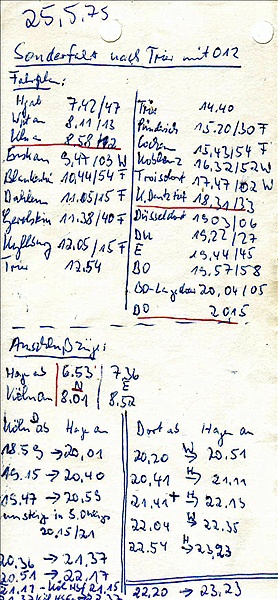 25.5.75
Sonderfahrt nach Trier mit 012
Fahrplan:
7.42/47
8.11/13
Köln 8.58/
9.47/03 W
Blankenheim 10,44/54 F
Dahlem 11.05/15 F
Gerolstein 11.38/40 F
Kyllburg 12.05/15 F
Trier 12.54
Trier 14.40
Pünderich 15.20/30 F
Cochem 15.43/54 F
Koblenz 16.32/52 W
Troisdorf 17.47/02 W
K. Deutz tief 18.31/33
Düsseldorf 19.03/06
DU 19.22/27
E 19.44/45
BO 19.57/58
BO-Langendreer 20,04/05
DO 20.15
Anschlußzüge:
Hagen ab 6.53 7.36
N E
Köln an 8.01 8.52
Köln ab Hagen an
18.59 → 20,01
19.15 → 20,40
19.47 → 20.53
20.15/21
20,36 → 21.37
20.51 → 22,17
Dort ab Hagen an
20,20 W→ 20.51
20,41 H→ 21.11
21,41+ H→ 22,13
22.04 W→ 22.35
22.54 H→ 23,23
22,20 → 23,23